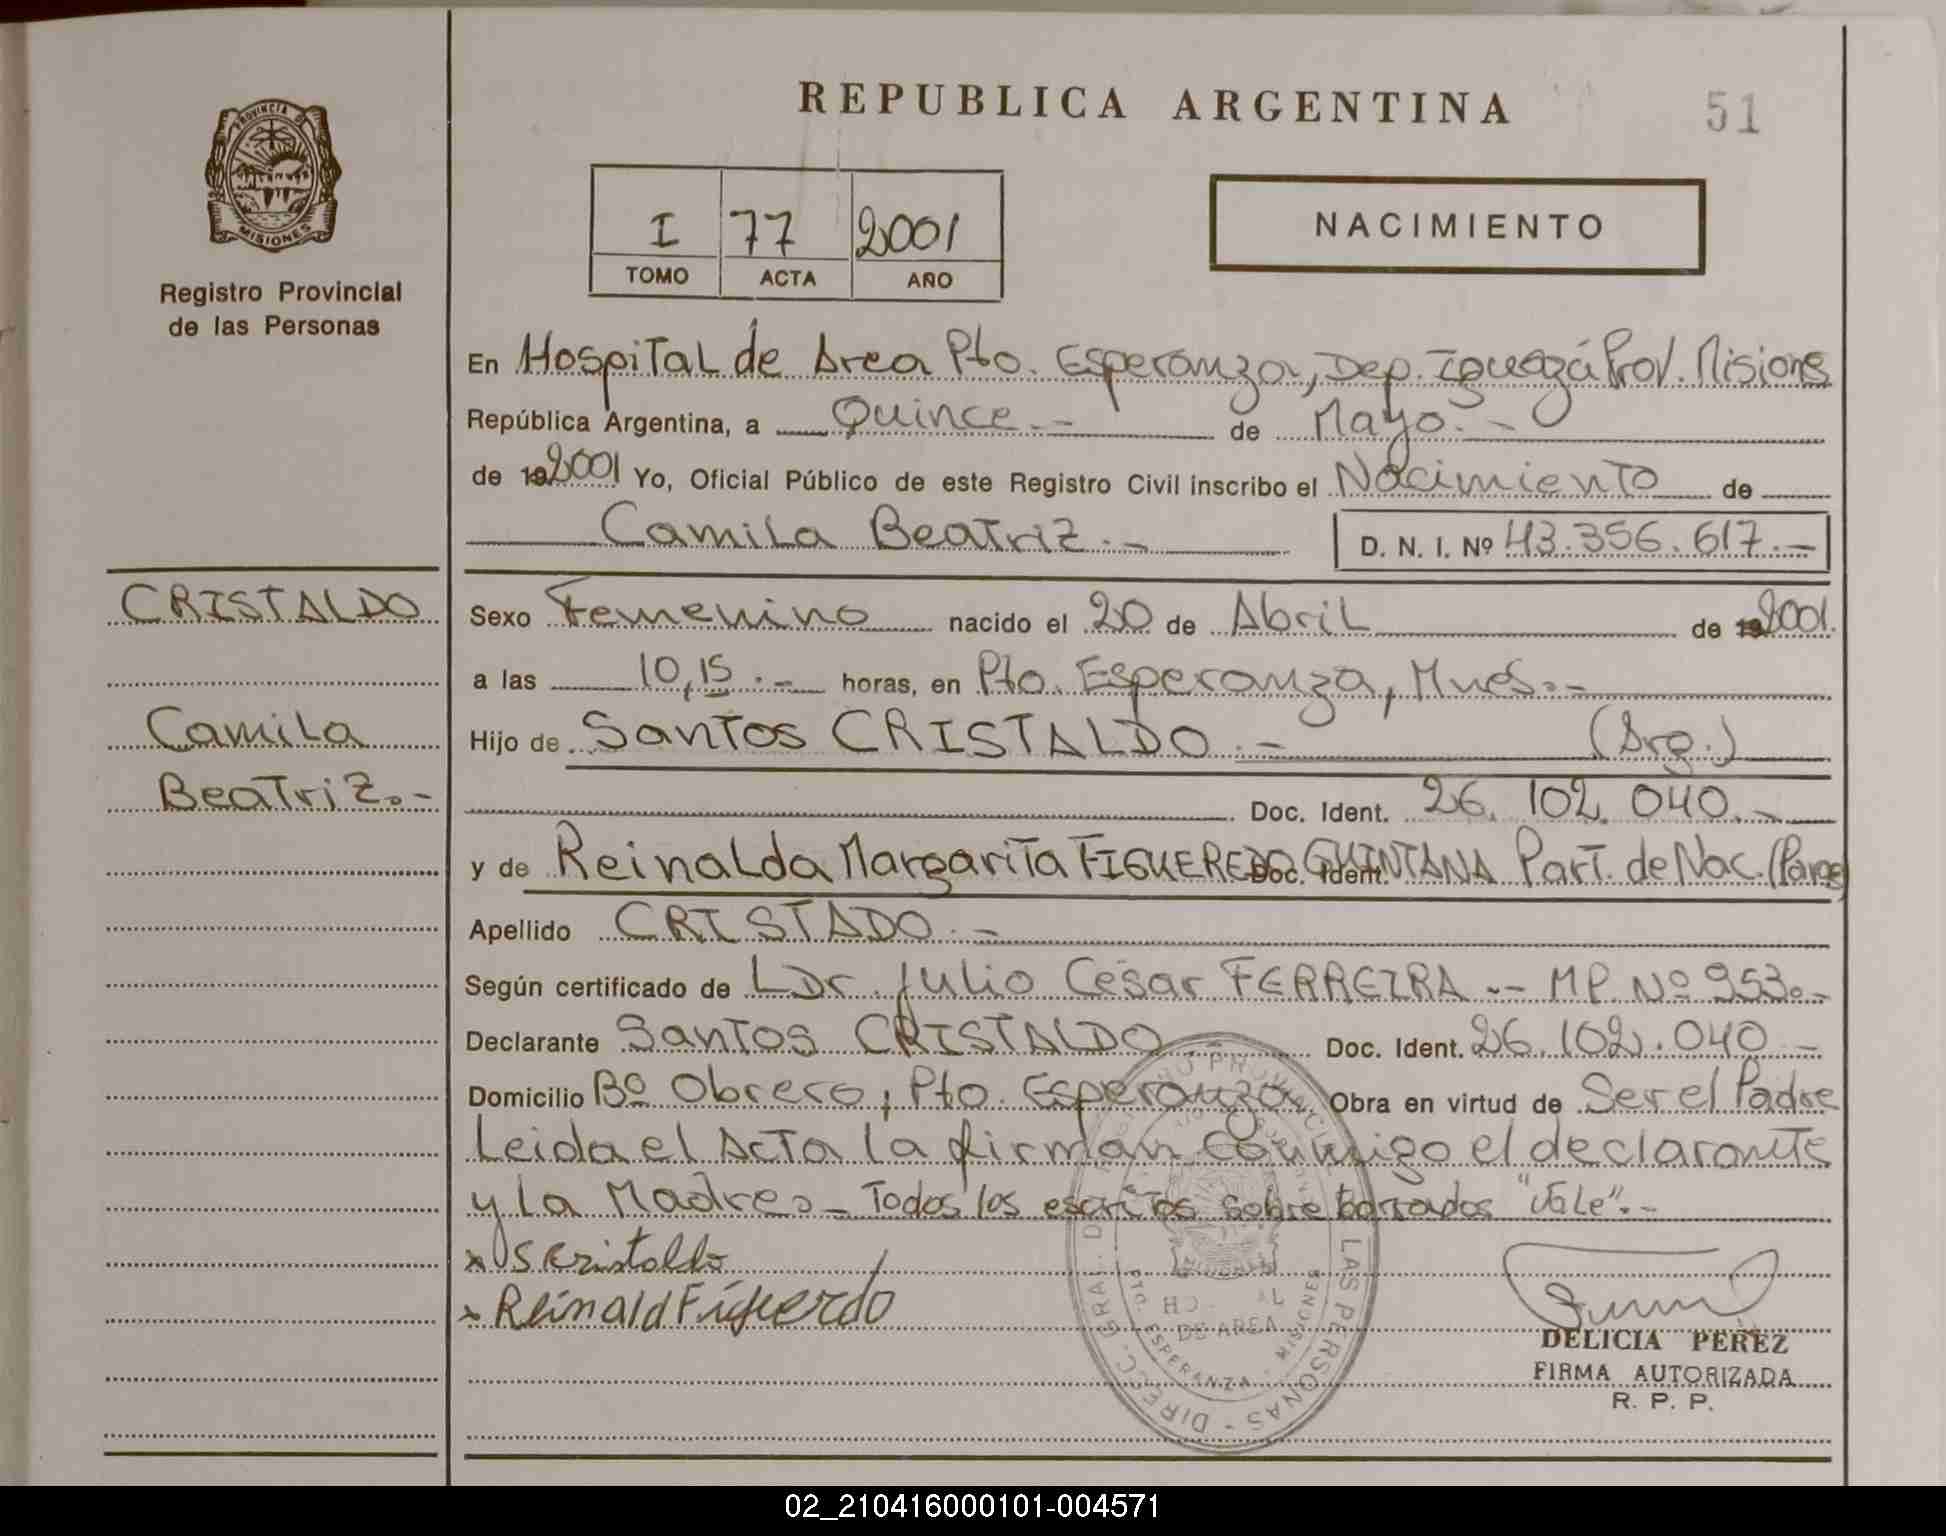 REPUBLICA ARGENTINA
51
PROVINCIA DE
MISIONES
Registro Provincial
de las Personas
I 77 2001
TOMO ACTA AÑO
NACIMIENTO
En Hospital de Area Pto. Esperanza, Dep. Iguazá Prov. Misiones
República Argentina, a Quince.- de Mayo.-
de 192001 Yo, Oficial Público de este Registro Civil inscribo el Nacimiento de
Camila Beatriz.- D. N. I. Nº 43.356.617.-
CRISTALDO
Camila
Beatriz.-
Sexo Femenino nacido el 20 de Abril de 192001.
a las 10,15.- horas, en Pto. Esperanza, Mnes.-
Hijo de Santos CRISTALDO.- (Arg.)
Doc. Ident. 26.102.040.-
y de Reinalda Margarita FIGUEREDO QUINTANA Doc. Ident. Part. de Nac. (Parag)
Apellido CRISTADO.-
Según certificado de LDr. Julio César FERREIRA.-- MP. Nº 953.-
Declarante Santos CRISTALDO Doc. Ident. 26.102.040.-
Domicilio Bº Obrero, Pto. Esperanza. Obra en virtud de Ser el Padre
Leida el Acta la firman conmigo el declarante
y la Madre.- Todos los escritos sobre borrados "Vale".-
x S Cristaldo
x Reinald Figueredo
HO AL
DE AREA
PTO. ESPERANZA - MISIONES
DIRECC. GRAL. D LAS PERSONAS
DELICIA PEREZ
FIRMA AUTORIZADA
R. P. P.
02_210416000101-004571